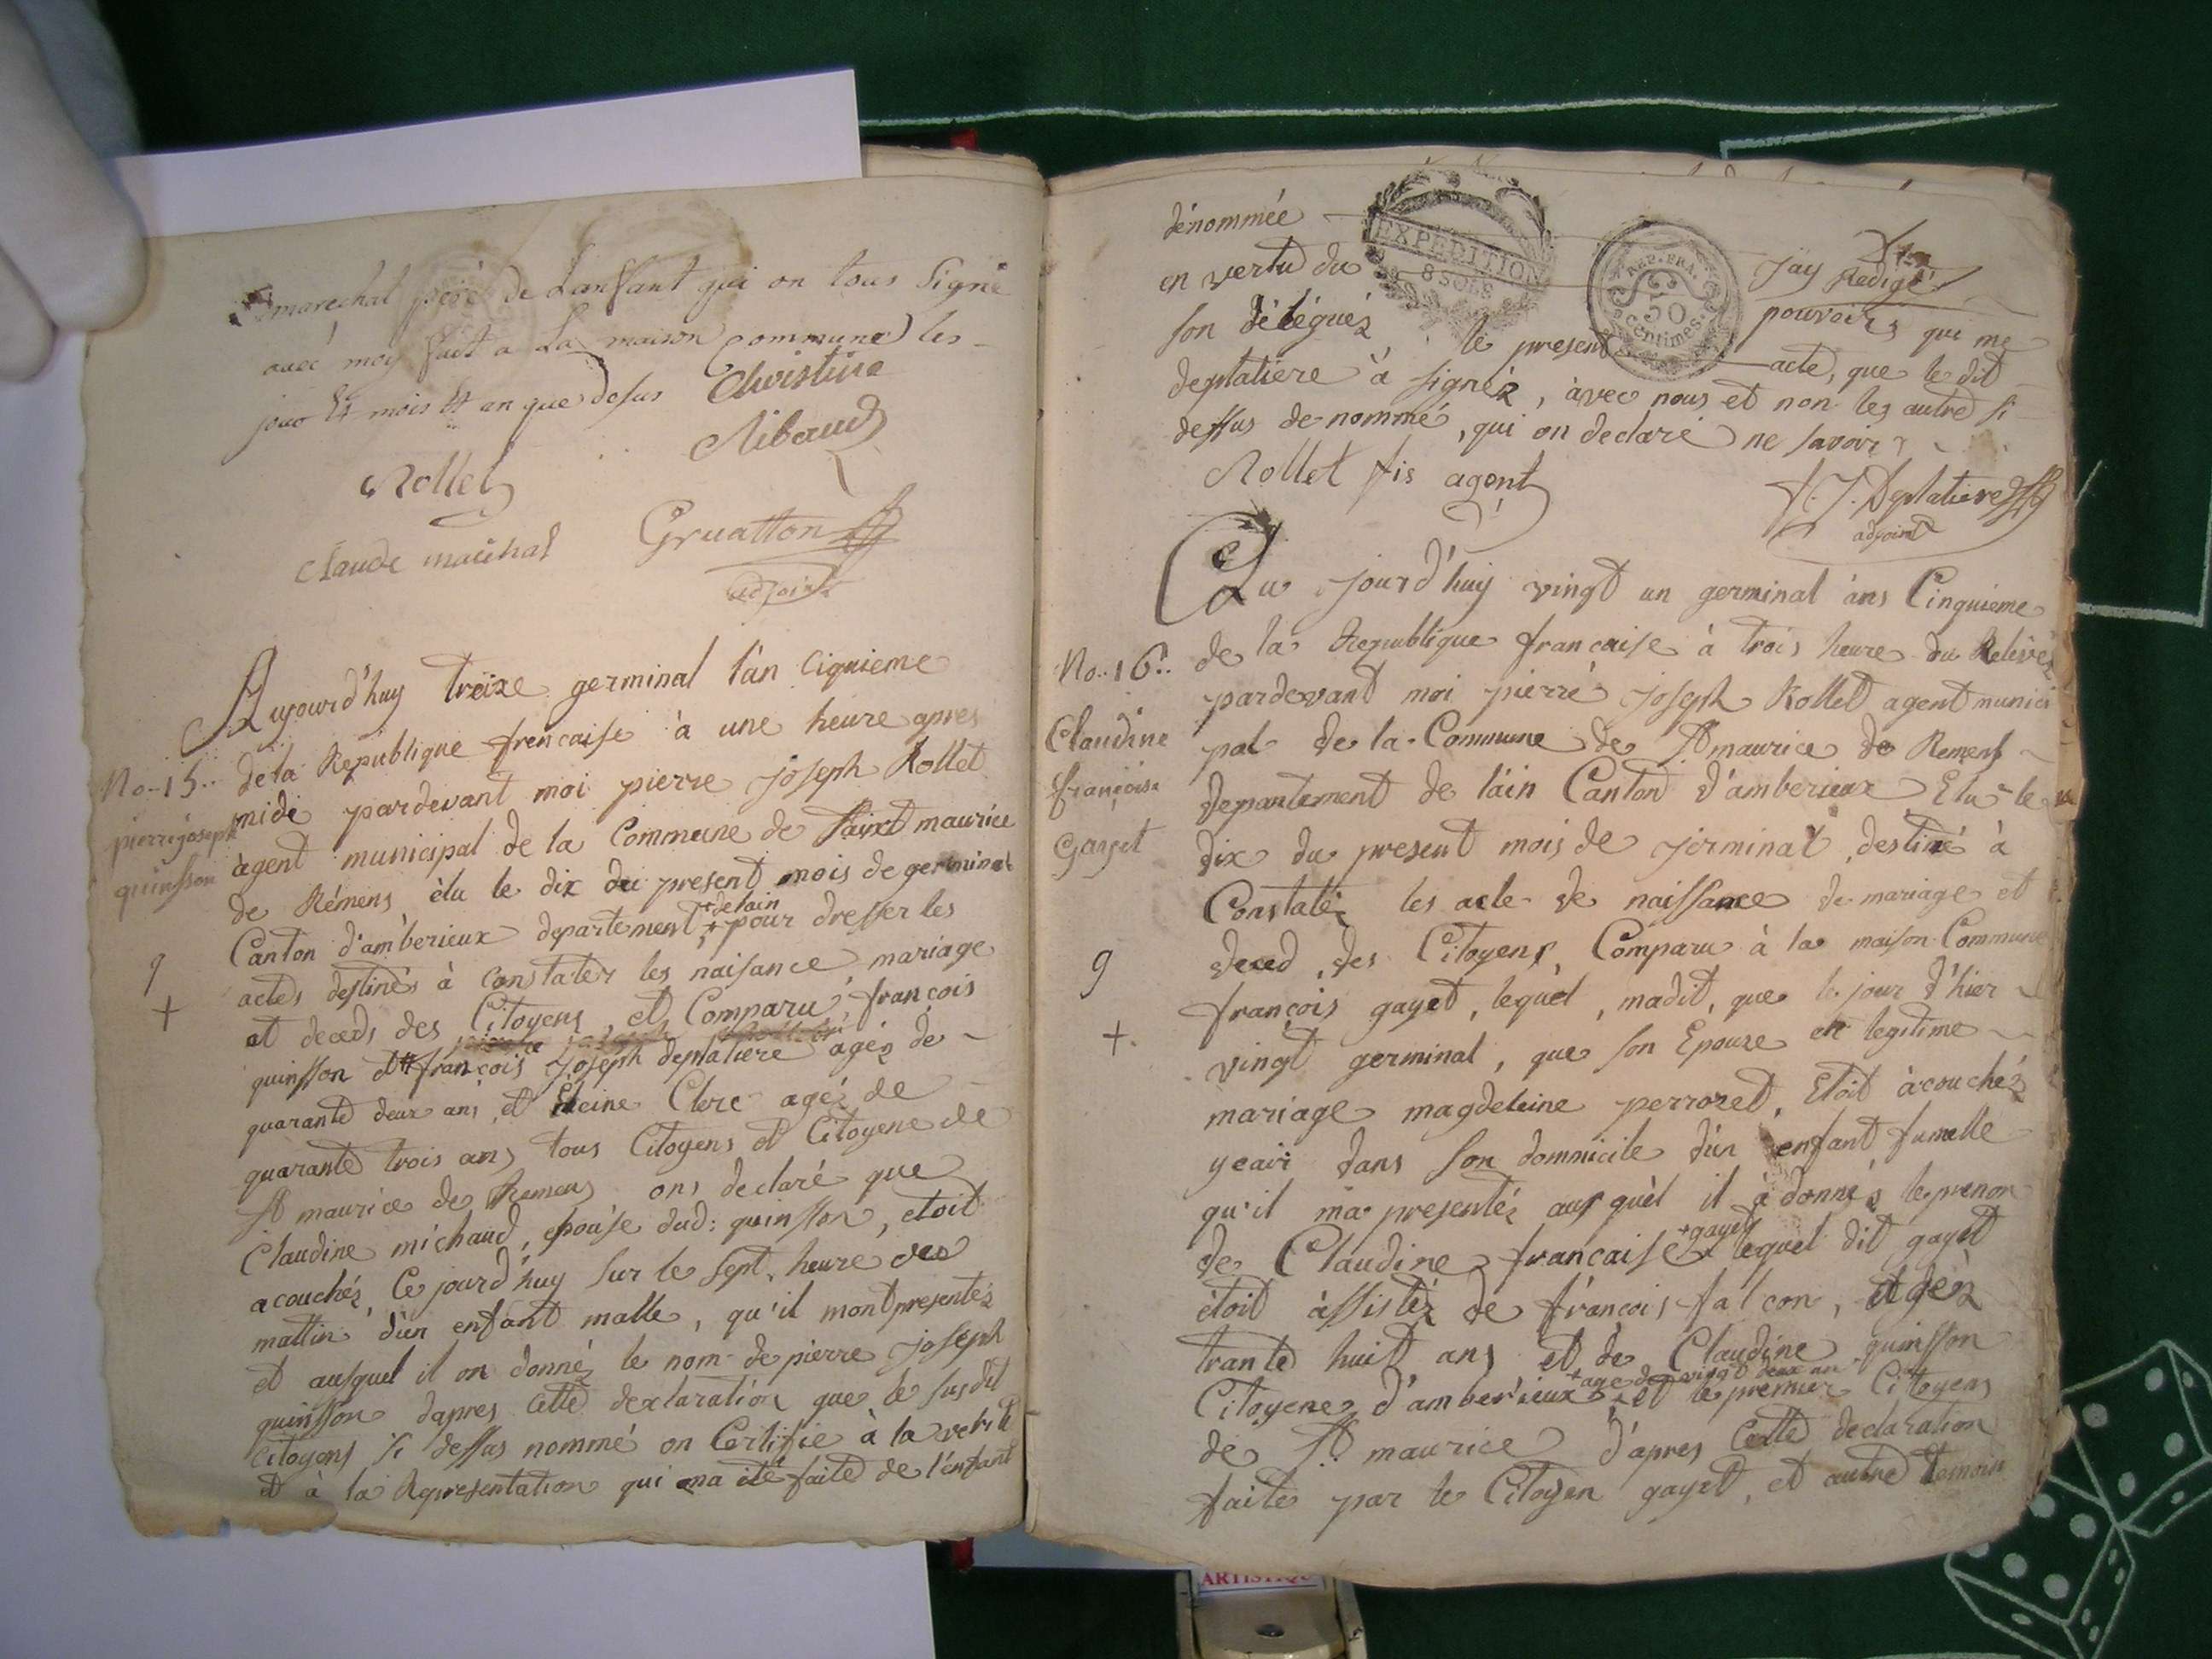 marechal pere de Lanfant qui on tous Signé
avec moy fait a La maison commune les
jour Et mois Et an que desus Christine
Ribaud
Rollet
Claude maréchal
Gruatton
adjoint
Aujourd'huy treize germinal l'an Ciquieme
de la Republique francaise à une heure apres
No. 15..
pierre joseph
quinsson
9
+
midi pardevant moi pierre joseph Rollet
agent municipal de la Commune de Saint maurice
de Rémens élu le dix du present mois de germinal
Canton d'amberieux departement + pour dresser les
+ de lain
actes destinés à Constater les naisance, mariage
et deceds des Citoyens, et Comparu, françois
quinsson et françois joseph deplatiere agéz de
quarante deux ans, et Clerc agéz de
quarante trois ans, tous Citoyens et Citoyene de
St maurice de Remens, ons declaré que
Claudine michaud, epouse dud: quinsson, etoit
acouchéz, Ce jourd'huy sur le sept heure du
mattin d'un enfant malle, qu'il mont presentéz
et ausquel il on donnéz le nom de pierre joseph
quinsson dapres Cette declaration que le susdit
Citoyens si dessus nommé on Certifie à la verité
et à la Representation qui ma été faite de l'enfant
dénommée
jay Redigé
en vertu du
pouvoirs qui me
son délégués
EXPEDITION
8 SOLS
REP. FRA.
50
centimes
le present acte, que le dit
deplatiere à signéz, àvec nous et non les autre si
dessus denommé, qui on declaré ne savoir
Rollet fis agent
f. J. Deplatiere
adjoint
Au jourd'huy vingt un germinal ans Cinquieme
No. 16..
Claudine
françoise
Gayet
9
+
de la Republique francaise à trois heure du Relevéz
pardevant moi pierre joseph Rollet agent munici
pal de la Commune de St maurice de Remens
departement de l'ain Canton d'amberieux Elu le
dix du present mois de jerminal, destiné à
Constatéz les acte de naissance de mariage et
deced, des Citoyens, Comparu à la maison Commune
françois gayet, lequel, madit, que le jour d'hier
vingt germinal, que son Epouse en legitime
mariage magdeleine perrozet, Etoit àcouchéz
dans son dommicile d'un enfant fumelle
qu'il ma presentéz ausquel il à donnéz le prenon
de Claudine francaise + lequel dit gayet
+ gayet
étoit àssistéz de françois falcon, agéz
trante huit ans et de Claudine quinsson
Citoyene d'amberieux + et le premier Citoyens
+ age de vingt deux an
de St maurice d'apres Cette declaration
faite par le Citoyen gayet, et autre temoin
ARTISTIQUE